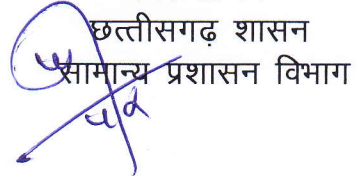 छत्तीसगढ़ शासन
सामान्य प्रशासन विभाग